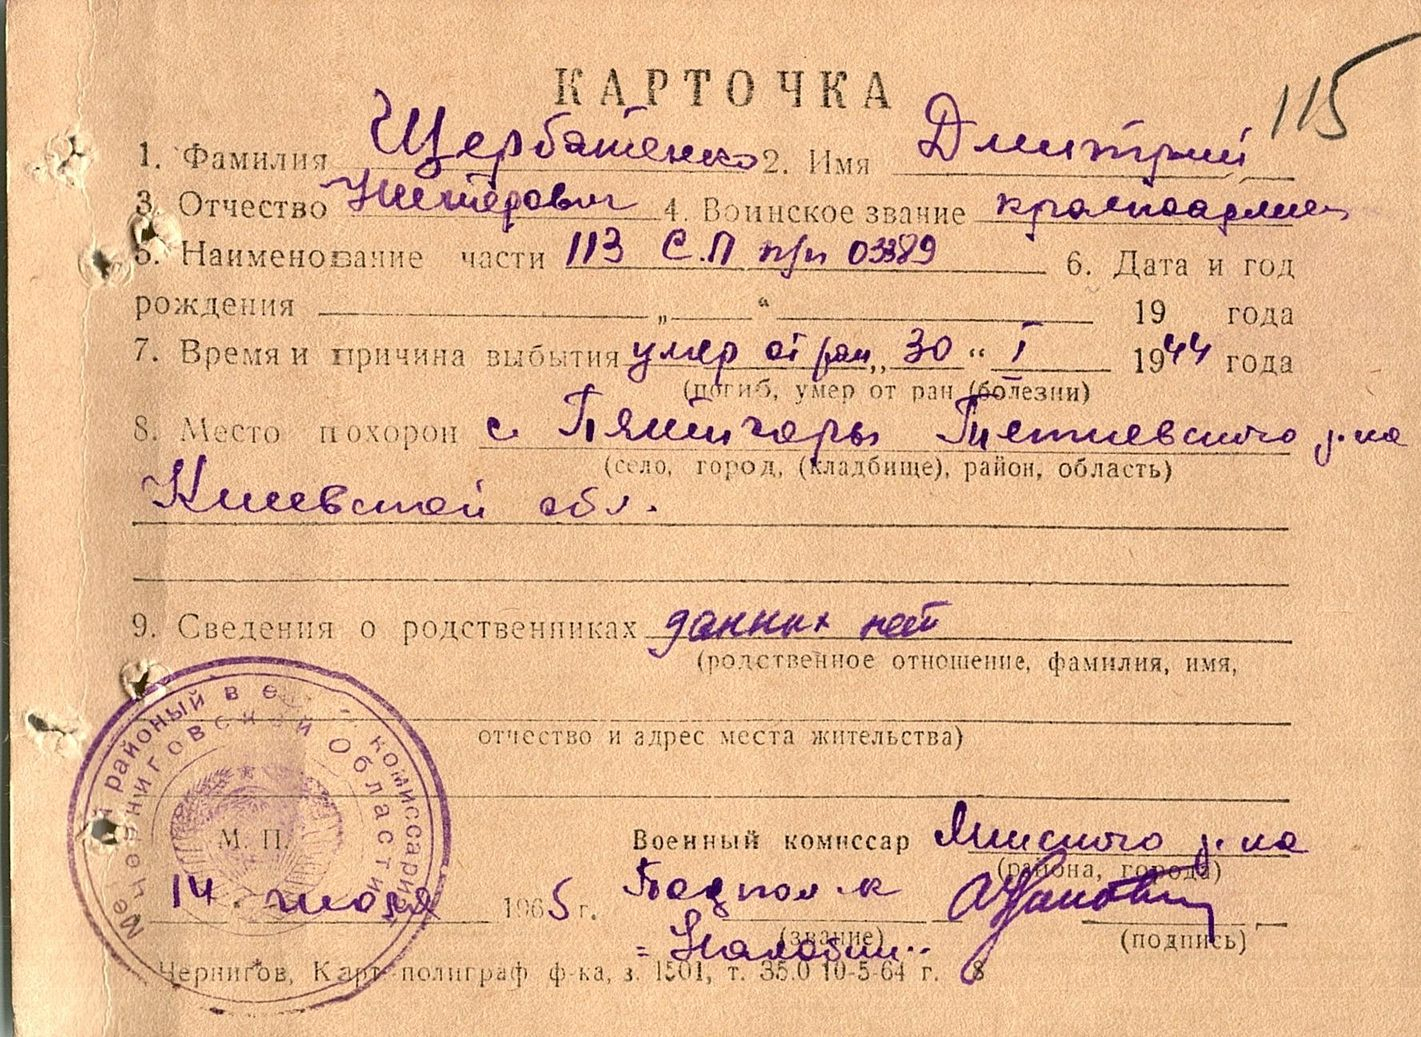 115
КАРТОЧКА
1. Фамилия Щербатенко 2. Имя Дмитрий
3. Отчество Нестерович 4. Воинское звание красноармеец
5. Наименование части 113 С.П п/п 03389 6. Дата и год
рождения „ “ 19 года
7. Время и причина выбытия умер от ран „30“ I 1944 года
(погиб, умер от ран (болезни)
8. Место похорон с. Пятигоры Тетиевского р-на
(село, город, (кладбище), район, область)
Киевской обл.
9. Сведения о родственниках данных нет
(родственное отношение, фамилия, имя,
отчество и адрес места жительства)
районый комиссариат
Черниговской Области
М. П.
Военный комиссар р-на
(района, города)
14 1965 г. Подполк
(звание) (подпись)
Чернигов, Карт полиграф ф-ка, з. 1501, т. 35.0 10-5-64 г.